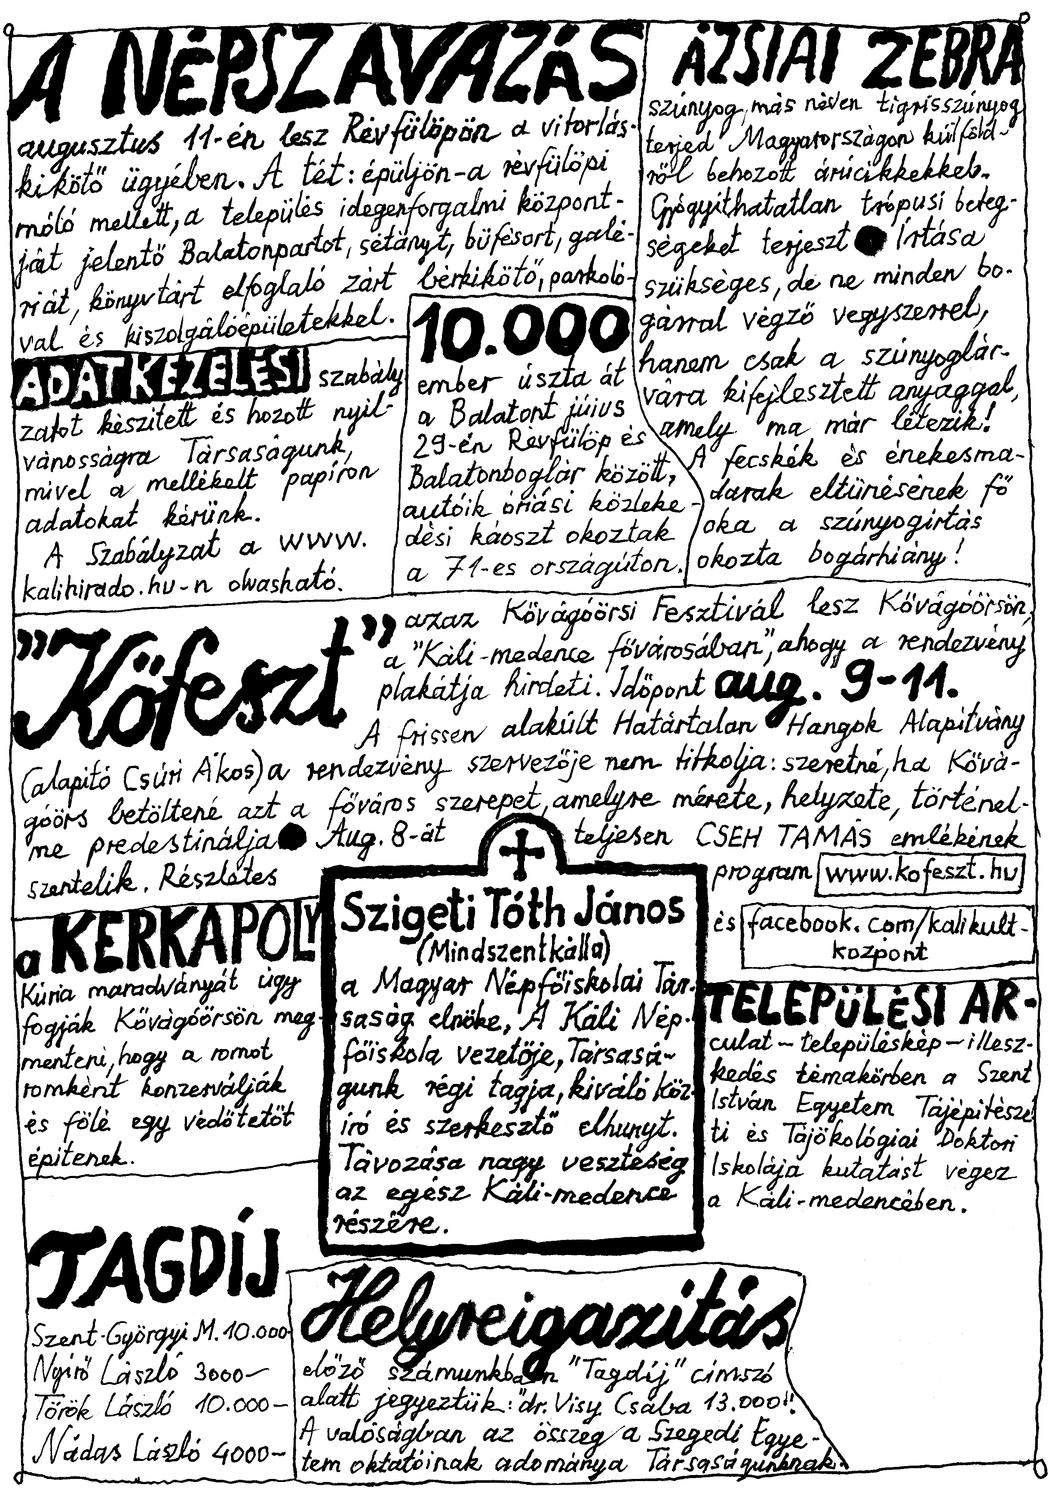 A NÉPSZAVAZÁS
augusztus 11-én lesz Révfülöpön a vitorlás-
kikötő ügyében. A tét: épüljön-a révfülöpi
móló mellett, a település idegenforgalmi központ-
ját jelentő Balatonpartot, sétányt, büfésort, galé-
riát, könyvtárt elfoglaló zárt bérkikötő, parkoló-
val és kiszolgálóépületekkel.
ÁZSIAI ZEBRA
szúnyog, más néven tigrisszúnyog
terjed Magyarországon külföld-
ről behozott árúcikkekkel.
Gyógyíthatatlan trópusi beteg-
ségeket terjeszt ● Írtása
szükséges, de ne minden bo-
gárral végző vegyszerrel,
hanem csak a szúnyoglár-
vára kifejlesztett anyaggal,
amely ma már létezik!
A fecskék és énekesma-
darak eltünésének fő
oka a szúnyogírtás
okozta bogárhiány!
ADATKEZELÉSI szabály
zatot készített és hozott nyil-
vánosságra Társaságunk,
mivel a mellékelt papíron
adatokat kérünk.
A Szabályzat a www.
kalihirado.hu-n olvasható.
10.000
ember úszta át
a Balatont júius
29-én Révfülöp és
Balatonboglár között,
autóik óriási közleke-
dési káoszt okoztak
a 71-es országúton.
"Kőfeszt"
azaz Kővágóörsi Fesztivál lesz Kővágóörsön,
a "Káli-medence fővárosában", ahogy a rendezvény
plakátja hirdeti. Időpont aug. 9-11.
A frissen alakúlt Határtalan Hangok Alapítvány
(alapító Csúri Ákos) a rendezvény szervezője nem titkolja: szeretné, ha Kővá-
góörs betöltené azt a főváros szerepet, amelyre mérete, helyzete, történel-
me predestinálja ● Aug. 8-át teljesen CSEH TAMÁS emlékének
szentelik. Részletes program www.kofeszt.hu
és facebook.com/kalikult-
kozpont
a KERKAPOLY
Kúria maradványát úgy
fogják Kővágóörsön meg-
menteni, hogy a romot
romként konzerválják
és fölé egy védőtetőt
építenek.
Szigeti Tóth János
(Mindszentkálla)
a Magyar Népfőiskolai Tár-
saság elnöke, A Káli Nép-
főiskola vezetője, Társasá-
gunk régi tagja, kiváló köz-
író és szerkesztő elhunyt.
Távozása nagy veszteség
az egész Káli-medence
részére.
TELEPÜLÉSI AR-
culat - településkép - illesz-
kedés témakörben a Szent
István Egyetem Tájépítésze
ti és Tájökológiai Doktori
Iskolája kutatást végez
a Káli-medencében.
TAGDÍJ
Szent-Györgyi M. 10.000-
Nyirő László 3000-
Török László 10.000-
Nádas László 4000-
Helyreigazítás
előző számunkban "Tagdíj" címszó
alatt jegyeztük: "dr. Visy Csaba 13.000"!
A valóságban az összeg a Szegedi Egye-
tem oktatóinak adománya Társaságunknak.